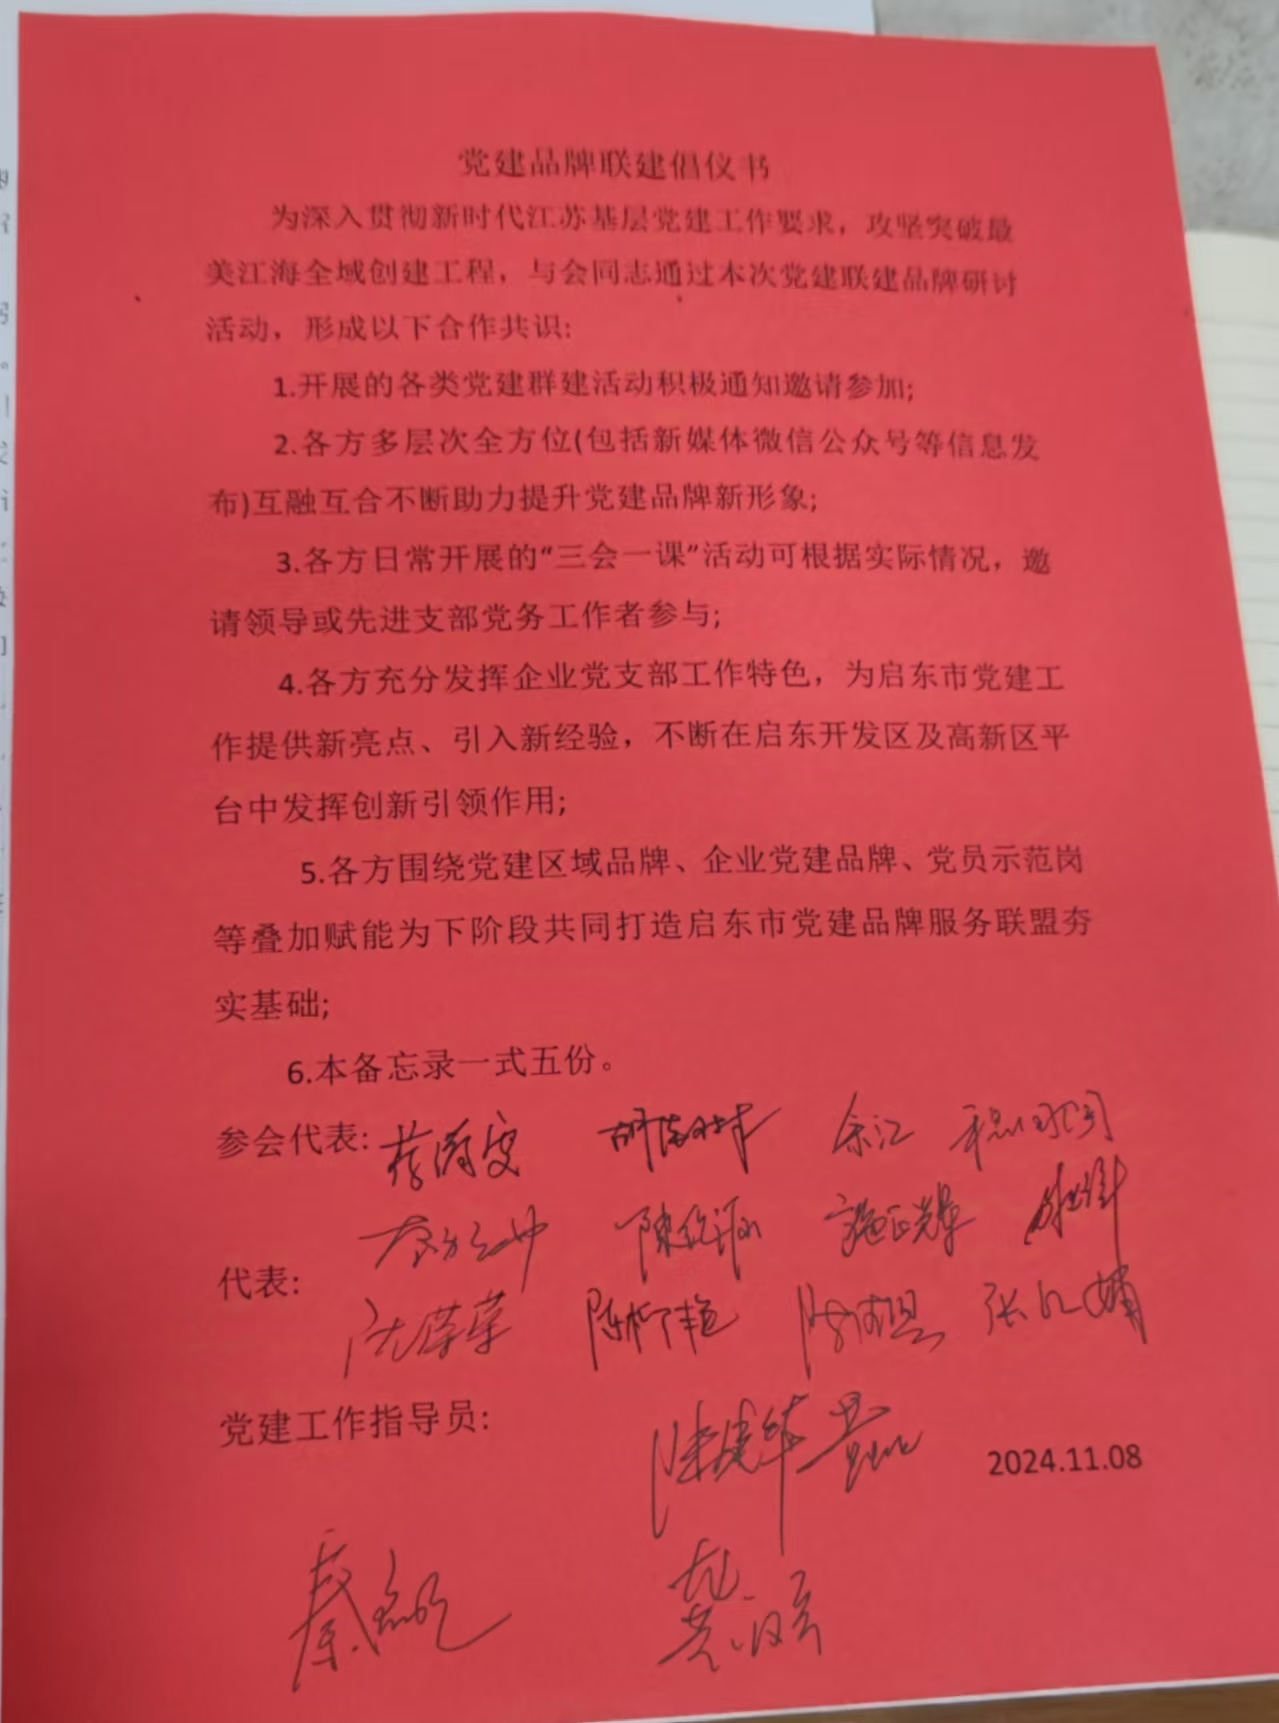 党建品牌联建倡仪书
为深入贯彻新时代江苏基层党建工作要求，攻坚突破最
美江海全域创建工程，与会同志通过本次党建联建品牌研讨
活动，形成以下合作共识:
1.开展的各类党建群建活动积极通知邀请参加;
2.各方多层次全方位(包括新媒体微信公众号等信息发
布)互融互合不断助力提升党建品牌新形象;
3.各方日常开展的“三会一课”活动可根据实际情况，邀
请领导或先进支部党务工作者参与;
4.各方充分发挥企业党支部工作特色，为启东市党建工
作提供新亮点、引入新经验，不断在启东开发区及高新区平
台中发挥创新引领作用;
5.各方围绕党建区域品牌、企业党建品牌、党员示范岗
等叠加赋能为下阶段共同打造启东市党建品牌服务联盟夯
实基础;
6.本备忘录一式五份。
参会代表: 余江
施正辉
代表:
党建工作指导员:
2024.11.08